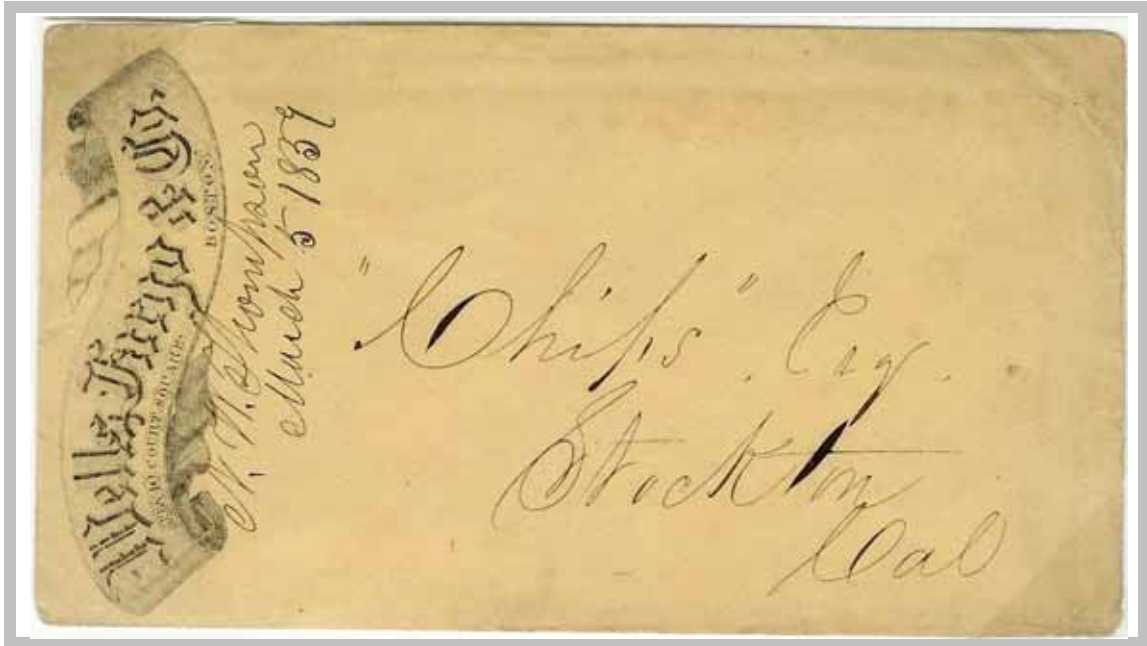 Wells Fargo & Co.
COURT SQUARE
BOSTON
Thompson
March 5 1857
"Chips", Esq.
Stockton
Cal